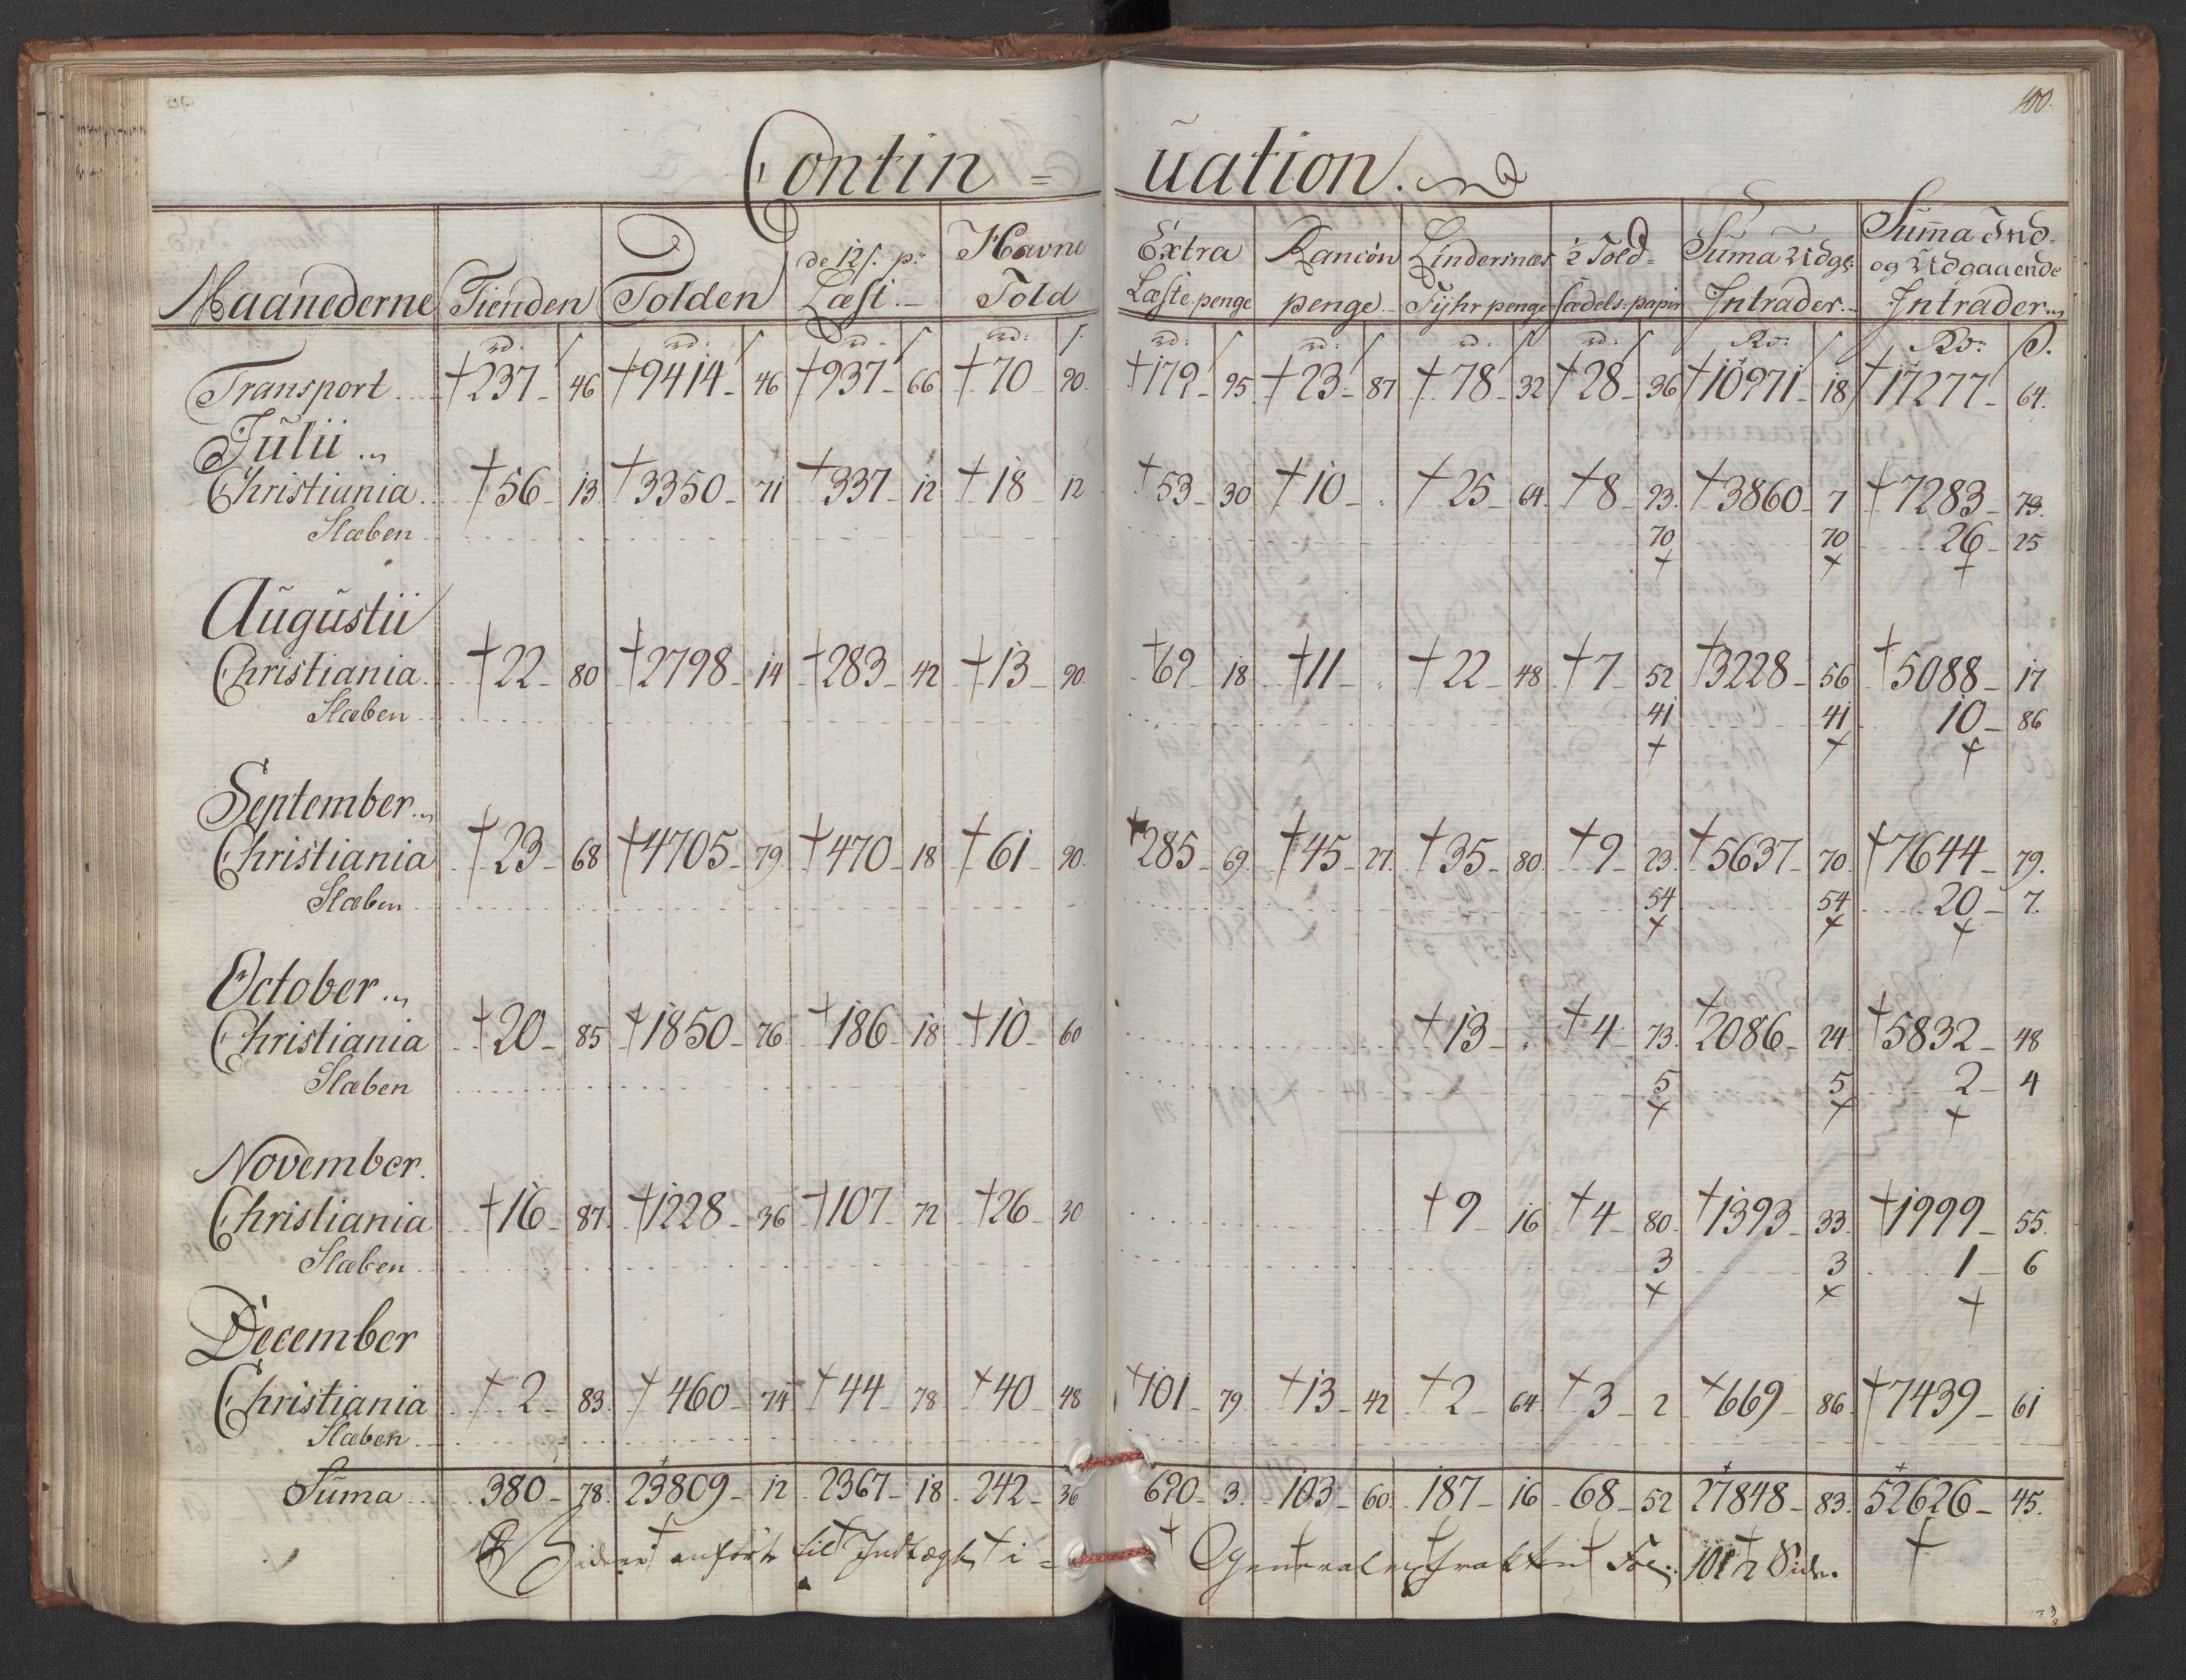 100.
Contin = uation.
Maanederne Tienden Tolden de 12 s. pr Læst. Havne Told Extra Læste penge Rancion penge Lindersnæs Fyhr penge ½ Told-sædels-papir Suma Udg: Intrader. Suma Ind- og Udgaaende Intrader
rd. s rd. s rd. s rd: s. rd: s rd: s rd. s rd. s Rdr: s Rdr: s.
Transport †237 46 †9414 46 †937 66 †70 90 †179 95 †23 87 †78 32 †28 36 †10971 18 †17277 64.
Julii
Christiania †56 13 †3350 71 †337 12 †18 12 †53 30 †10 . †25 64 †8 23 †3860 7 †7283 73.
Slæben 70 70 26 25
Augustii
Christiania †22 80 †2798 14 †283 42 †13 90 †69 18 †11 . †22 48 †7 52 †3228 56 †5088 17
Slæben 41 41 10 86
September
Christiania †23 68 †4705 79 †470 18 †61 90 †285 69 †45 27 †35 80 †9 23 †5637 70 †7644 79.
Slæben 54 54 20 7.
October
Christiania †20 85 †1850 76 †186 18 †10 60 †13 . †4 73 †2086 24 †5832 48
Slæben 5 5 2 4
November.
Christiania †16 87 †1228 36 †107 72 †26 30 †9 16 †4 80 †1393 33 †1999 55.
Slæben 3 3 1 6
December
Christiania †2 83 †460 74 †44 78 †40 48 †101 79 †13 42 †2 64 †3 2 †669 86 †7439 61
Slæben
Suma 380 78 23809 12 2367 18 242 36 690 3 103 60 187 16 68 52 27848 83 52626 45.
anført til Indtægt i = General extracten Fol: 101 2 Side.